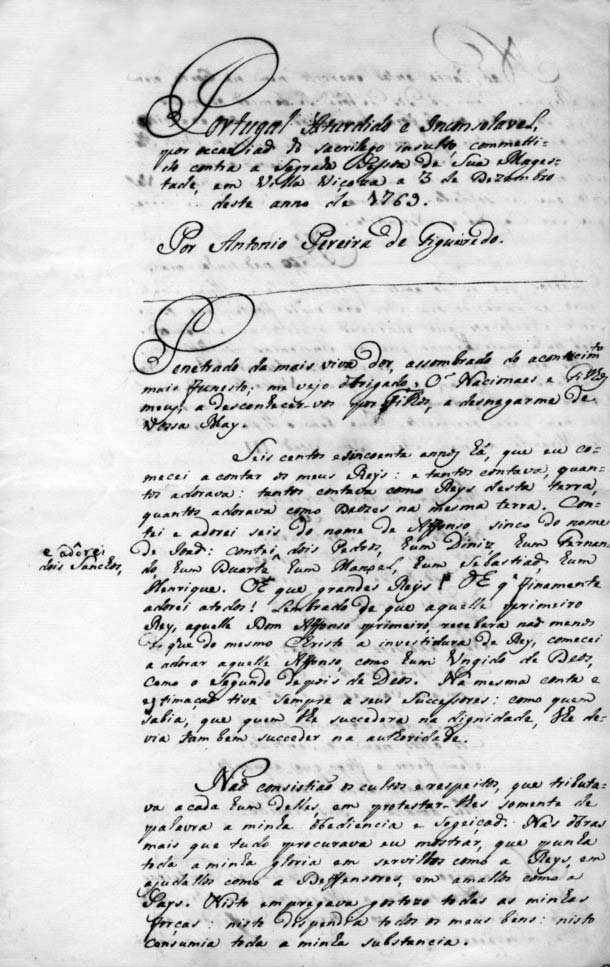 Portugal Aturdido e Inconsolavel,
por occaziaõ do sacrilego insulto commetti-
do contra a Sagrada Pessoa de Sua Mages-
tade, em Villa Viçoza a 3 de Dezembro
deste anno de 1769.
Por Antonio Pereira de Figueiredo.
Penetrado da mais viva dor, assombrado do acontecimto
mais funesto; me vejo obrigado, Ó Nacionaes e Filhos
meus, a desconhecer-vos por Filhos, a desnegarme de
Vossa May.
Seis centos e sincoenta annos há, que eu co-
mecei a contar os meus Reys: e tantos contava, quan-
tos adorava: tantos contava como Reys desta terra,
quantos adorava como Deozes na mesma terra. Con-
tei e adorei seis do nome de Affonso, sinco do nome
e adôrei
dois Sanchos,
de Joaõ: contei dois Pedros, hum Diniz, hum Fernan-
do, hum Duarte, hum Manoel, hum Sebastiaõ, hum
Henrique. Oh que grandes Reys! Oh E q' finamente
adorei a todos! Lembrado de que aquelle primeiro
Rey, aquelle Dom Affonso primeiro, recebera naõ menos
que do mesmo Christo a investidura de Rey, comecei
a adorar aquelle Affonso, como hum Ungido de Deos,
como o Segundo depois de Deos. Na mesma conta e
estimaçaõ tive sempre a seus Successores: como quem
sabia, que quem lhe succedera na dignidade, lhe de-
via tambem succeder na authoridade.
Naõ consistiaõ os cultos e respeitos, que tributa-
va a cada hum delles, em protestar-lhes somente de
palavra a minha obediencia e sogeiçaõ. Nas obras
mais que tudo procurava eu mostrar, que punha
toda a minha gloria em servillos como a Reys, em
ajudallos como a Deffensores, em amallos como a
Pays. Nisto empregava gostozo todas as minhas
forças: nisto despendia todos os meus bens: nisto
consumia toda a minha substancia.